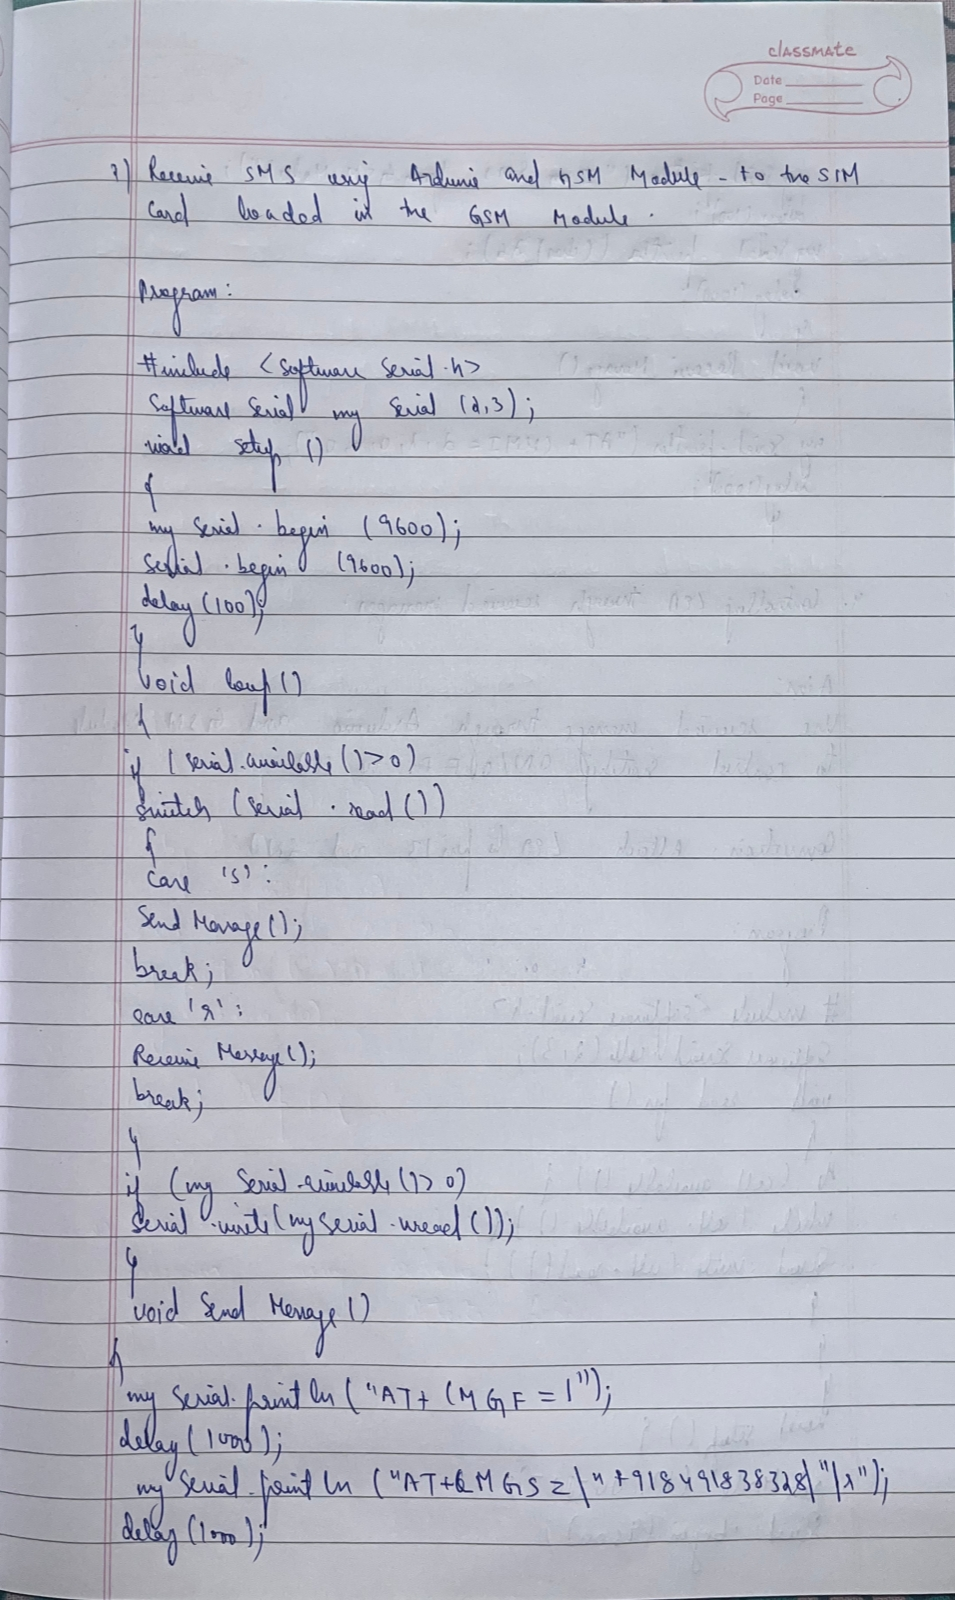 classmate
Date
Page
3) Receive SMS using Arduino and GSM Module - to the SIM
Card loaded in the GSM Module.
Program:
#include <Software Serial.h>
Software Serial my Serial (2,3);
void setup ()
{
my Serial . begin (9600);
Serial . begin (9600);
delay (100);
}
void loop ()
{
if (serial.available ()>0)
Switch (Serial . read ())
{
Case 's':
Send Message ();
break;
case 'r':
Receive Message ();
break;
}
if (my Serial .available ()>0)
Serial .write (my serial .read ());
}
void Send Message ()
{
my Serial.print ln ("AT+ CMGF =1");
delay (1000);
my Serial.print ln ("AT+CMGS=\"+918491838328\"\r");
delay (1000);